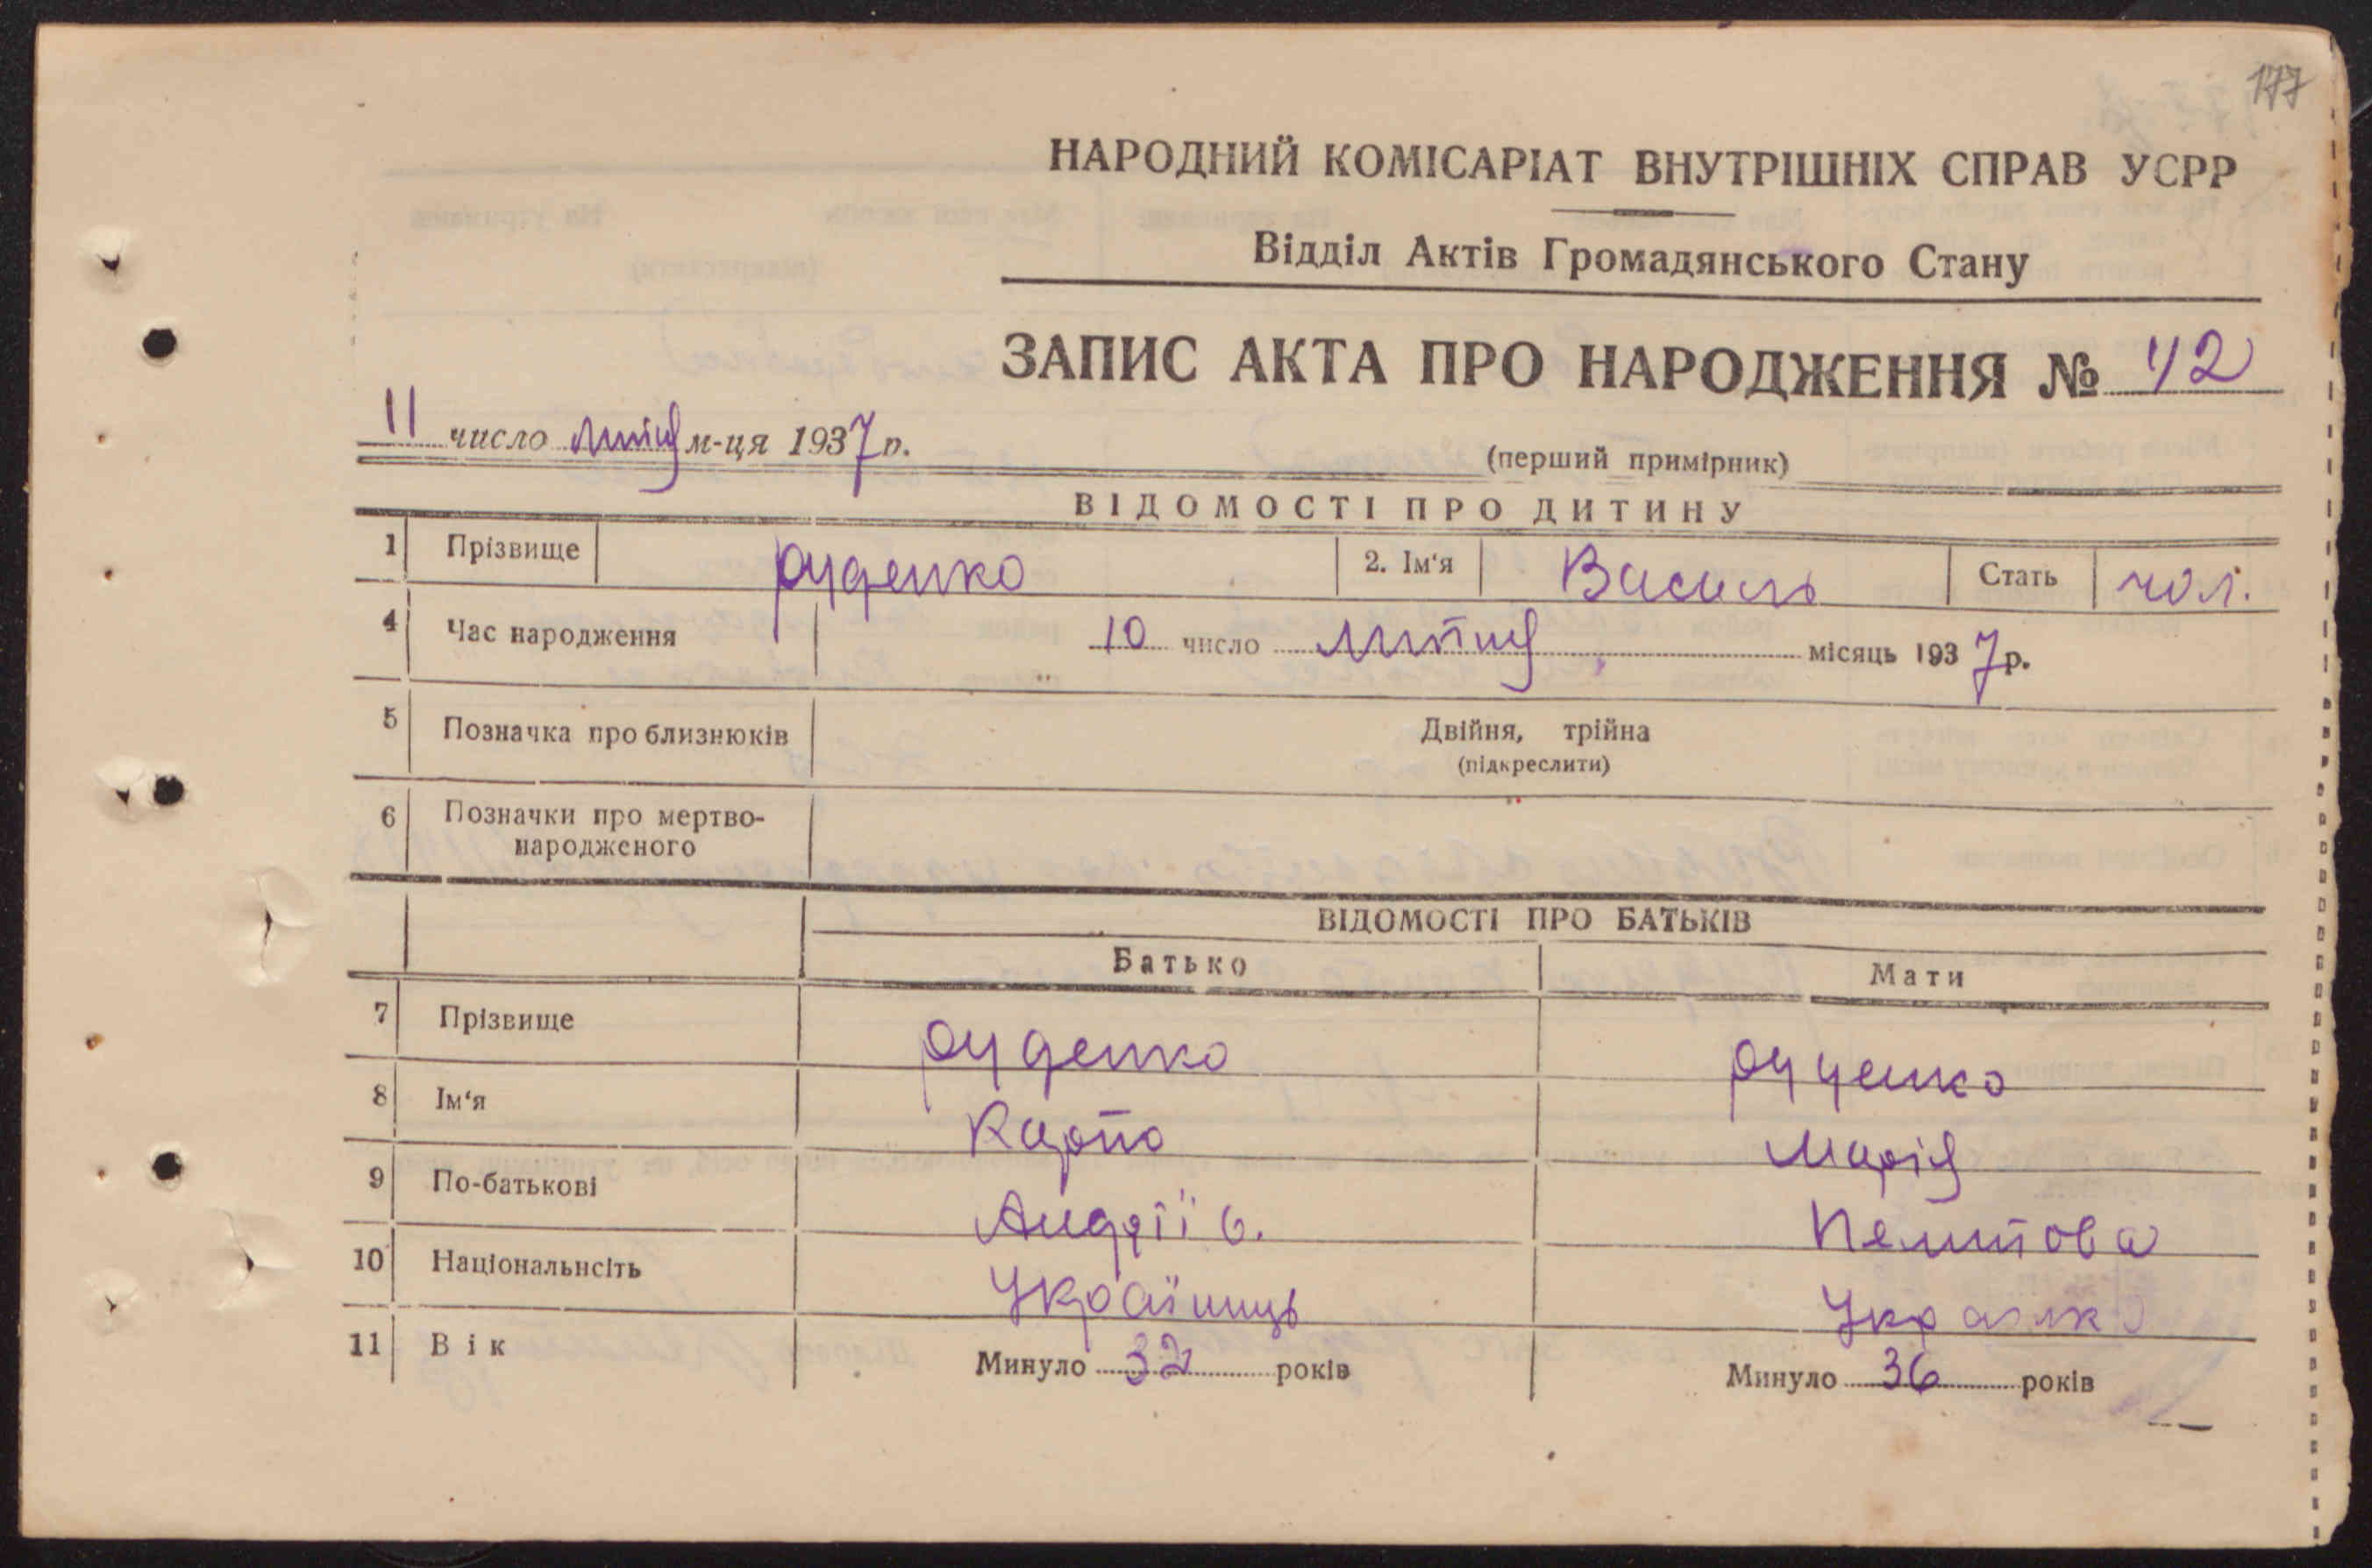 177
НАРОДНИЙ КОМІСАРІАТ ВНУТРІШНІХ СПРАВ УСРР
Відділ Актів Громадянського Стану
ЗАПИС АКТА ПРО НАРОДЖЕННЯ № 42
11 число м-ця 1937 р.
(перший примірник)
ВІДОМОСТІ ПРО ДИТИНУ
1 Прізвище Руденко 2. Ім'я Василь Стать чол.
4 Час народження 10 число місяць 1937 р.
5 Позначка про близнюків Двійня, трійна
(підкреслити)
6 Позначки про мертво-
народженого
ВІДОМОСТІ ПРО БАТЬКІВ
Батько Мати
7 Прізвище Руденко Руденко
8 Ім'я Карпо Марія
9 По-батькові Андріїв.
10 Національнсіть Українець Українка
11 Вік Минуло 32 років Минуло 36 років